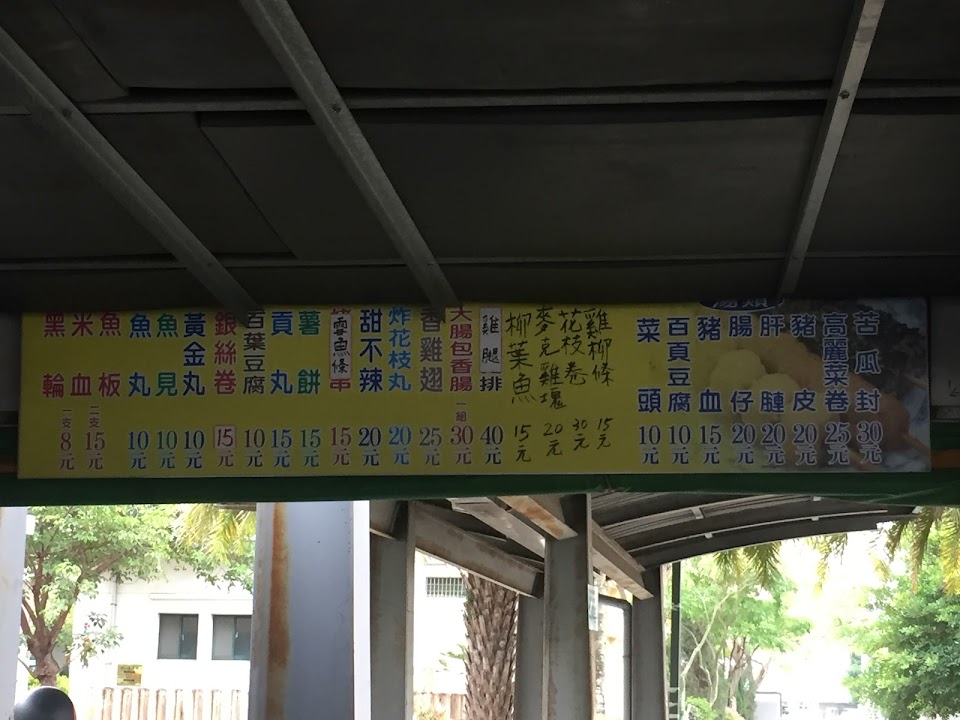 黑輪
米血
魚板
一支8元
二支15元
魚丸 10元
魚見 10元
黃金丸 10元
銀絲卷 15元
百葉豆腐 10元
貢丸 15元
薯餅 15元
魚條 15元
甜不辣 20元
炸花枝丸 20元
香雞翅 25元
大腸包香腸 一組30元
雞腿排 40元
柳葉魚 15元
麥克雞塊 20元
花枝卷 30元
雞柳條 15元
湯類
菜頭 10元
百頁豆腐 10元
豬血 15元
腸仔 20元
肝腱 20元
豬皮 20元
高麗菜卷 25元
苦瓜封 30元